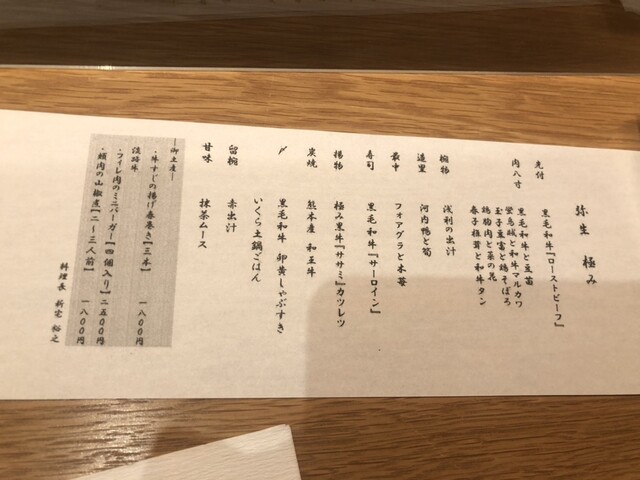 弥生 極み
先付 黒毛和牛『ローストビーフ』
肉八寸 黒毛和牛と豆苗
蛍烏賊と和牛マルカワ
玉子豆富と鶏そぼろ
鶏胸肉と菜の花
春子椎茸と和牛タン
椀物 浅利の出汁
造里 河内鴨と筍
最中 フォアグラと木苺
寿司 黒毛和牛『サーロイン』
揚物 極み黒牛『ササミ』カツレツ
炭焼 熊本産 和王牛
〆 黒毛和牛 卵黄しゃぶすき
いくら土鍋ごはん
留椀 赤出汁
甘味 抹茶ムース
―御土産―
・牛すじの揚げ春巻き【三本】 一八〇〇円
淡路牛
・フィレ肉のミニバーガー【四個入り】二五〇〇円
・頬肉の山椒煮【二～三人前】 一八〇〇円
料理長 新宅 裕之